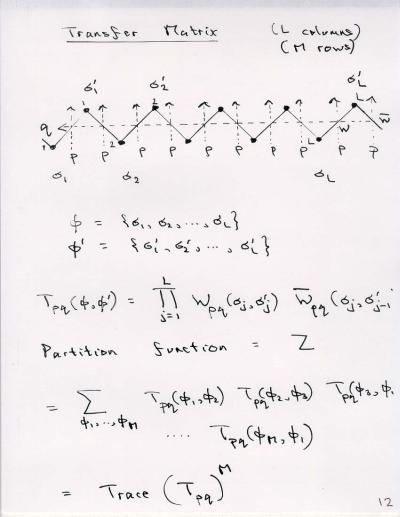 Transfer Matrix (L columns)
(M rows)
σ'₁ σ'₂ σ'_L
1 2 L
q < w w̄
1 2 L
p p p p p p p p p p
σ₁ σ₂ σ_L
φ = {σ₁, σ₂, ..., σ_L}
φ' = {σ'₁, σ'₂, ..., σ'_L}
T_pq(φ, φ') = ∏_{j=1}^{L} W_pq(σ_j, σ'_j) W̄_pq(σ_j, σ'_{j-1}
Partition function = Z
= Σ_{φ₁,...,φ_M} T_pq(φ₁, φ₂) T_pq(φ₂, φ₃) T_pq(φ₃, φ
.... T_pq(φ_M, φ₁)
= Trace (T_pq)^M
12